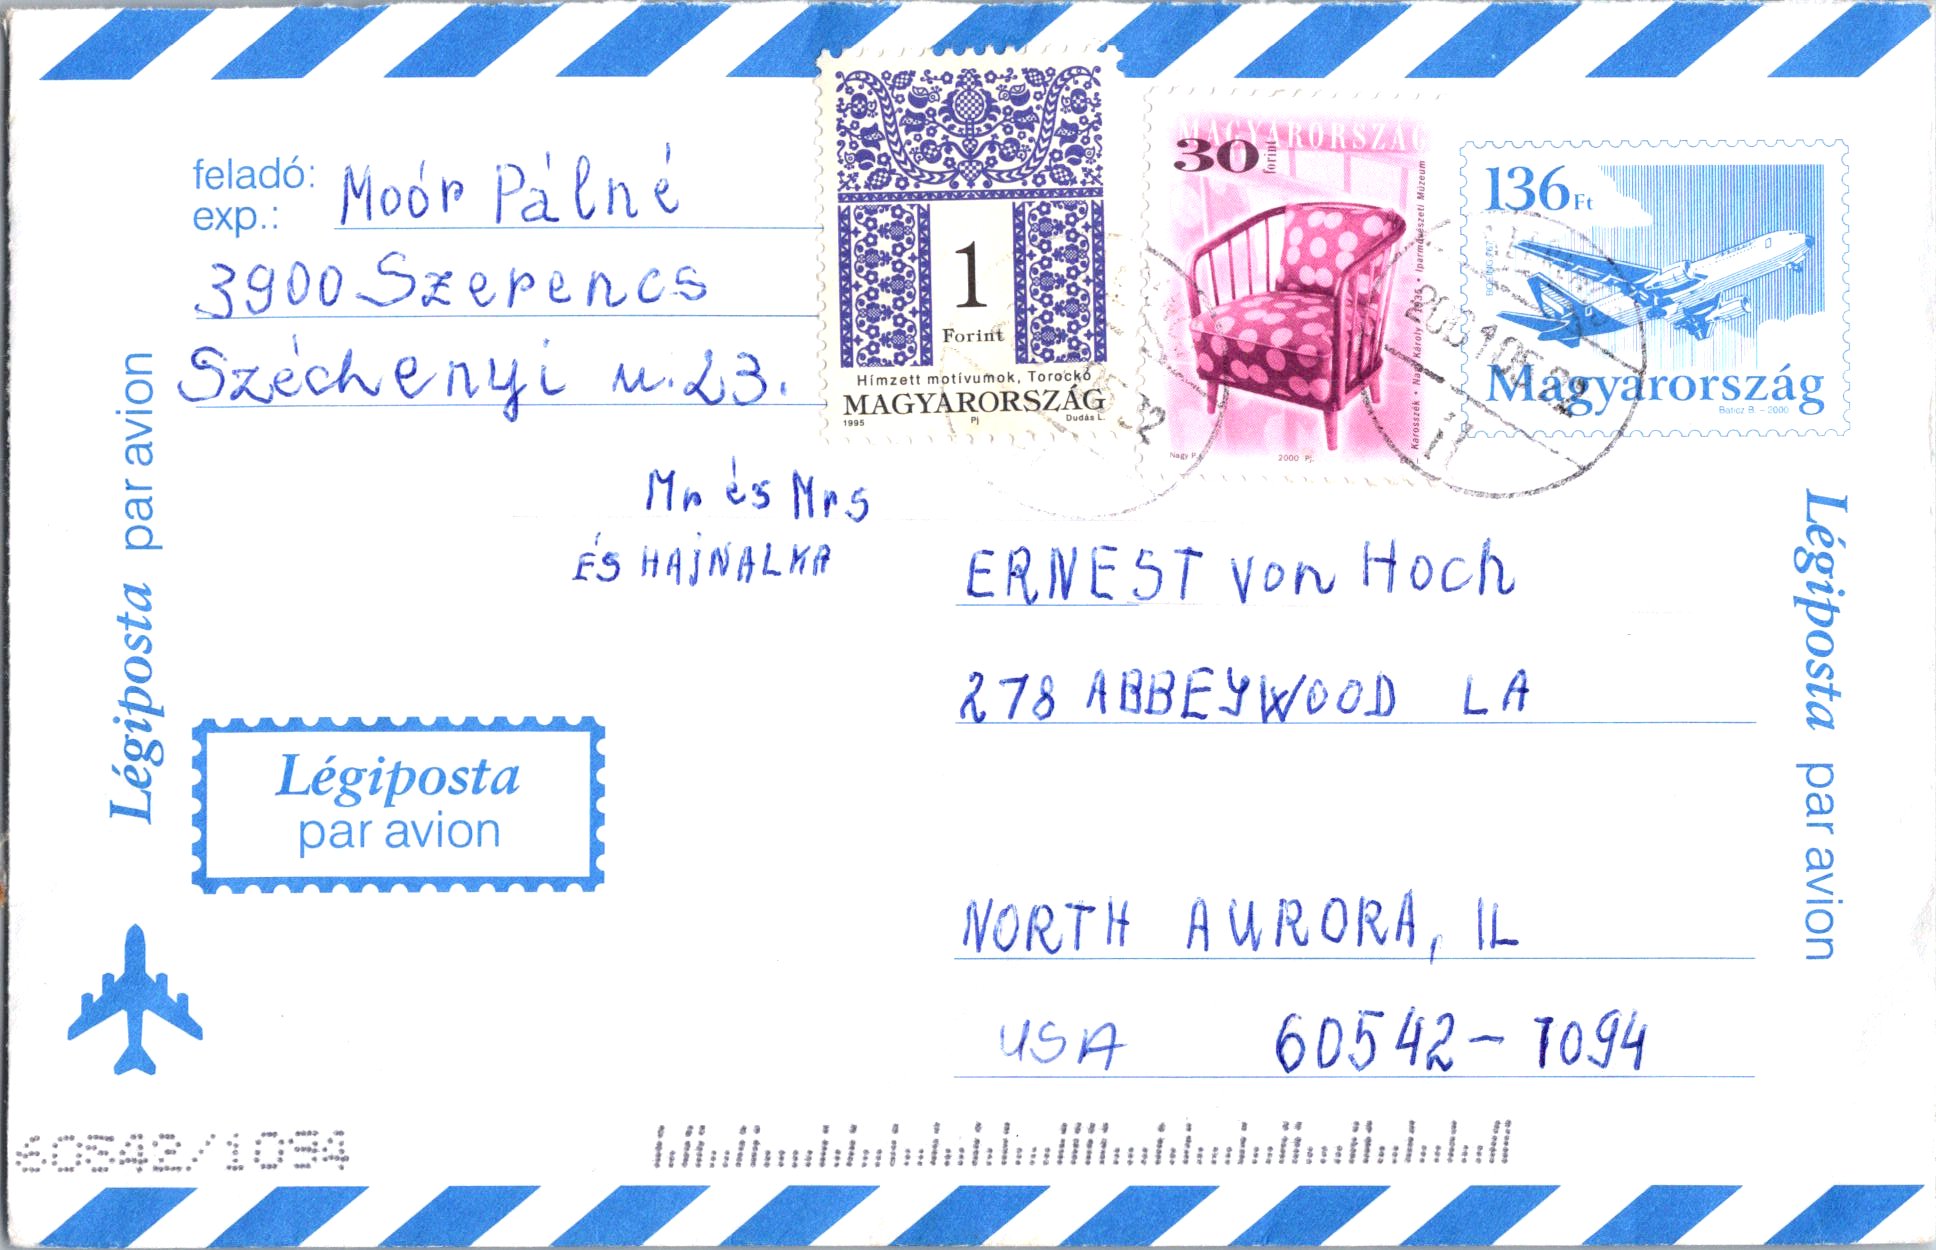 feladó: Moór Pálné
exp.:
3900 Szerencs
Széchenyi u. 23.
1
Forint
Hímzett motívumok, Torockó
MAGYARORSZÁG
1995 Pj Dudás L.
MAGYARORSZÁG
30 forint
Karosszék • Nagy Károly • 1935 • Iparművészeti Múzeum
Nagy P. 2000 Pj.
136 Ft
BOEING 767
Magyarország
Baticz B. – 2000
Mr és Mrs
ÉS HAJNALKA
ERNEST von Hoch
278 ABBEYWOOD LA
NORTH AURORA, IL
USA 60542 – 1094
Légiposta par avion
Légiposta
par avion
Légiposta par avion
60542/1094